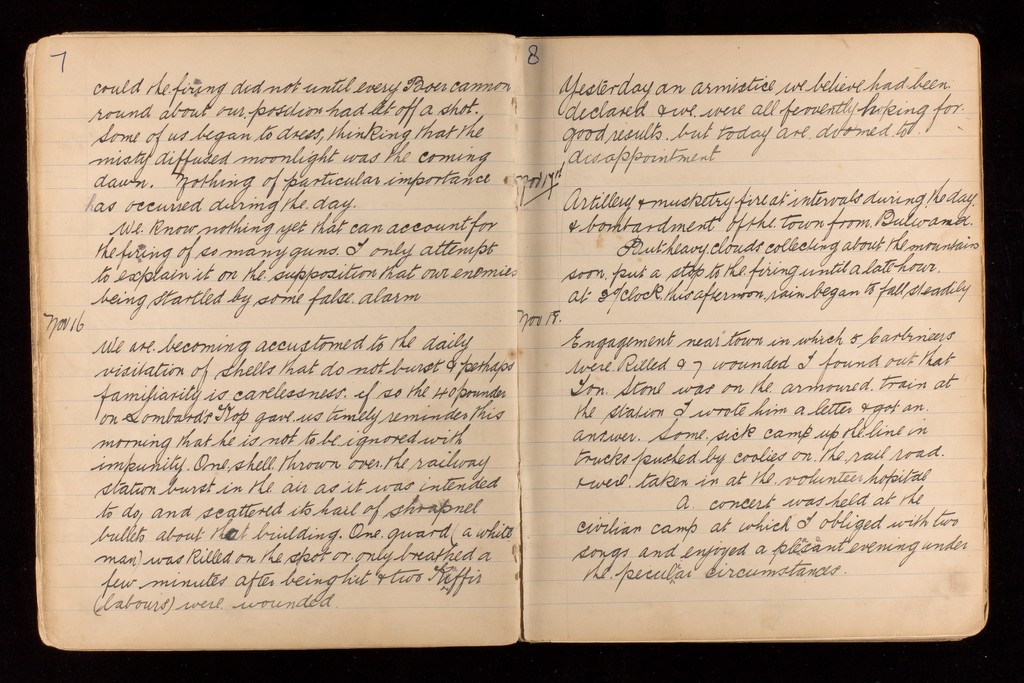 7
could the firing did not until every Boer cannon
round about our position had let off a shot.
Some of us began to dress, thinking that the
misty diffused moonlight was the coming
dawn. Nothing of particular importance
has occurred during the day.
We know nothing yet that can account for
the firing of so many guns. I only attempt
to explain it on the supposition that our enemies
being startled by some false alarm
Nov 16
We are becoming accustomed to the daily
visitation of shells that do not burst & perhaps
familiarity is carelessness. if so the 40 pounder
on Lombards Kop gave us timely reminder this
morning that he is not to be ignored with
impunity. One shell thrown over the railway
station burst in the air as it was intended
to do, and scattered its hail of shrapnel
bullets about that building. One guard (a white
man) was killed on the spot or only breathed a
few minutes after being hit & two Kiffir
(labours) were wounded.
8
Yesterday an armistice we believe had been
declared & we were all feverently hoking for
good results. but today are doomed to
disappointment
Nov 17th
Artillery & musketry fire at intervals during the day.
& bombardment of the town from Bulwana.
But heavy clouds collecting about the mountain
soon put a stop to the firing until a late hour.
at 3 o'clock this afternoon, rain began to fall steadily
Nov 18.
Engagement near town in which 5 Carbineers
were killed & 7 wounded I found out that
Jon. Stone was on the armoured train at
the station I wrote him a letter & got an
answer. Some sick camp up the line in
trucks pushed by coolies on the rail road.
& were taken in at the volunteer hopital
A concert was held at the
civilian camp at which I obliged with two
songs and enjoyed a plesant evening under
the peculiar circumstances.